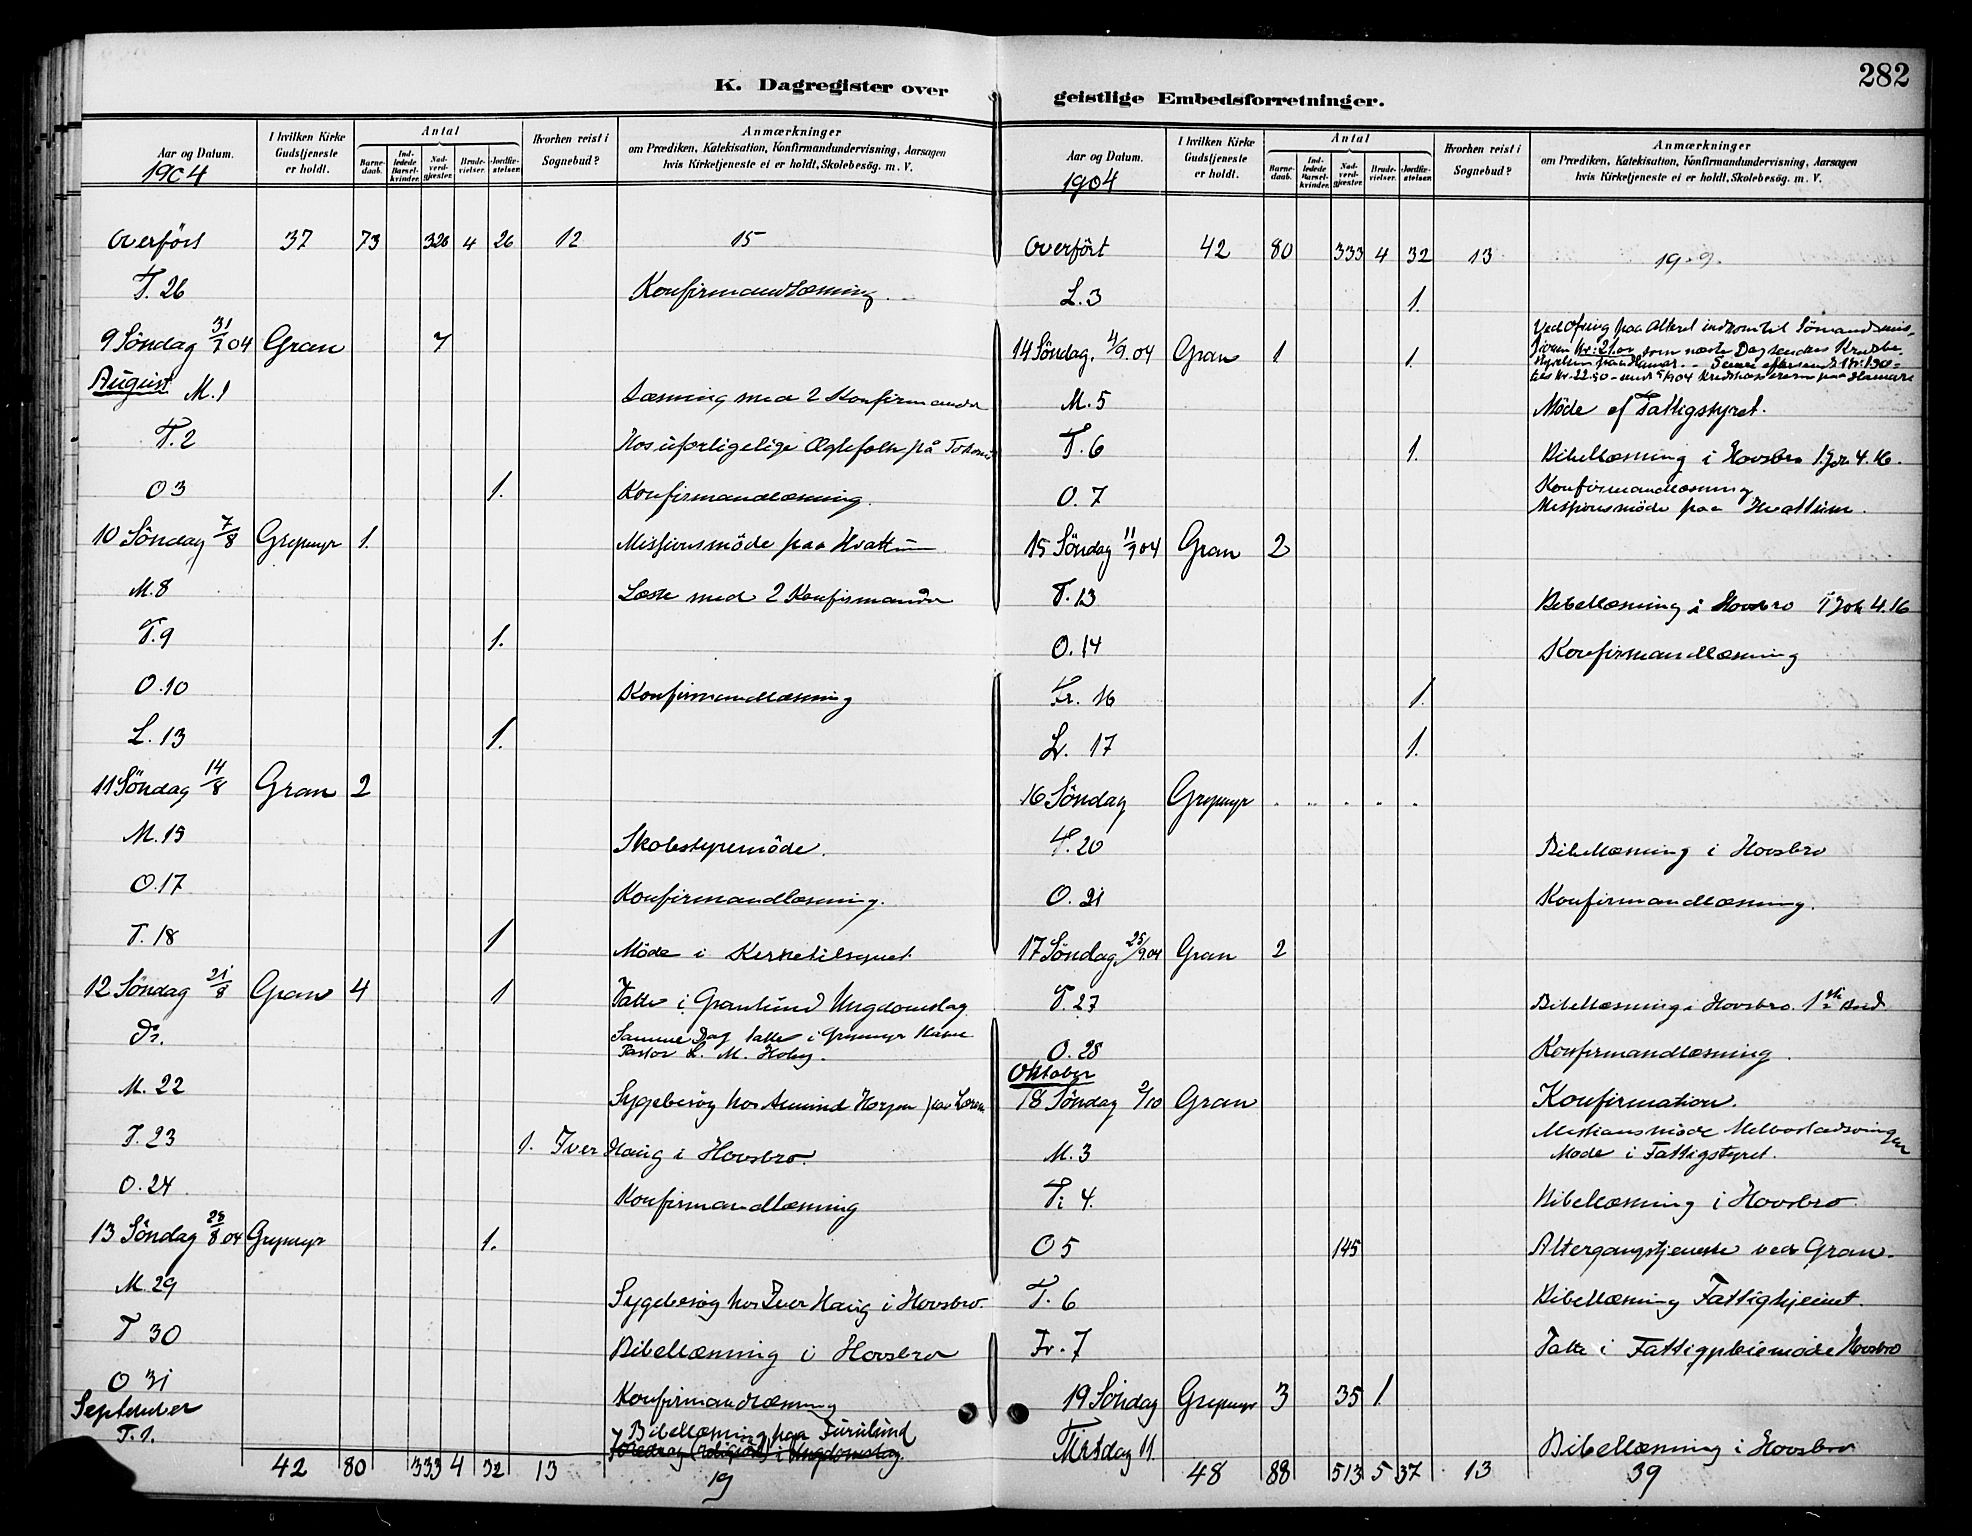 282
K. Dagregister over
geistlige Embedsforretninger.
Aar og Datum.
1904
I hvilken Kirke Gudstjeneste er holdt.
Antal
Barnedaab.
Indledede Barselkvinder.
Nadverdgjester.
Brudevielser.
Jordfæstelser.
Hvorhen reist i Sognebud?
Anmærkninger
om Prædiken, Katekisation, Konfirmandundervisning, Aarsagen
hvis Kirketjeneste ei er holdt, Skolebesög. m. V.
Overført 37 73 326 4 26 12 15
T. 26 Konfirmandlæsning
9 Söndag 31/7 04 Gran 7
August M. 1 Læsning med 2 Konfirmander
T. 2 Hos uforligelige Ægtefolk på
O 3 1. Konfirmandlæsning.
10 Söndag 7/8 Grymyr 1. Missionsmöde paa Hvattum
M. 8 Læste med 2 Konfirmander
T. 9 1.
O. 10 Konfirmandlæsning
L. 13 1.
11 Söndag 14/8 Gran 2
M. 15 Skolestyremöde.
O. 17 Konfirmandlæsning.
T. 18 1 Möde i Kirketilsynet
12 Söndag 21/8 Gran 4 1 Talte i Granlund Ungdomslag
Ds. Samme Dag talte i Grymyr Kirke
Pastor L. M.
M. 22 Sygebesög hos Amund Horgen paa
T. 23 1. Iver Haug i Hovsbro.
O. 24 Konfirmandlæsning
13 Söndag 28/8 04 Grymyr 1.
M. 29 Sygebesög hos Iver Haug i Hovsbro.
T 30 Bibellæsning i Hovsbro
O 31 Konfirmandlæsning
September
T. 1. Bibellæsning paa Furulund
Foredrag (religiöst) i Ungdomslag.
42 80 333 4 32 13 19
Aar og Datum.
1904
I hvilken Kirke Gudstjeneste er holdt.
Antal
Barnedaab.
Indledede Barselkvinder.
Nadverdgjester.
Brudevielser.
Jordfæstelser.
Hvorhen reist i Sognebud?
Anmærkninger
om Prædiken, Katekisation, Konfirmandundervisning, Aarsagen
hvis Kirketjeneste ei er holdt, Skolebesög. m. V.
Overfört 42 80 333 4 32 13 19
L. 3 1.
14 Söndag. 4/9. 04 Gran 1 1. Ved Ofring paa Alteret indkom til Sömandsmis-
sionen Kr: 21.00 som næste Dag sendes
M. 5 Möde af Fattigstyret.
T. 6 1. Bibellæsning i Hovsbro 1 Joh 4. 16.
O. 7 Konfirmandlæsning
Missionsmöde paa Hvattum.
15 Söndag 11/9 04 Gran 2
T. 13 Bibellæsning i Hovsbro 1 Joh 4. 16
O. 14 Konfirmandlæsning
Fr. 16 1.
L. 17 1.
16 Söndag Grymyr
T. 20 Bibellæsning i Hovsbro
O. 21 Konfirmandlæsning.
17 Söndag 25/9 04 Gran 2
T. 27 Bibellæsning i Hovsbro. 1ste Bud
O. 28 Konfirmandlæsning
Oktober
18 Söndag 2/10 Gran Konfirmation.
Missionsmöde Melbostadsvingen
M. 3 Möde i Fattigstyret.
Ti 4. Bibellæsning i Hovsbro.
O 5 145 Altergangstjeneste ved Gran.
T. 6 Bibellæsning Fattighjemet.
Fr. 7 Talte i Fattigpleiemöde Hovsbro
19 Söndag Grymyr 3 35 1.
Tirsdag 11. Bibellæsning i Hovsbro
48 88 513 5 37 13 39